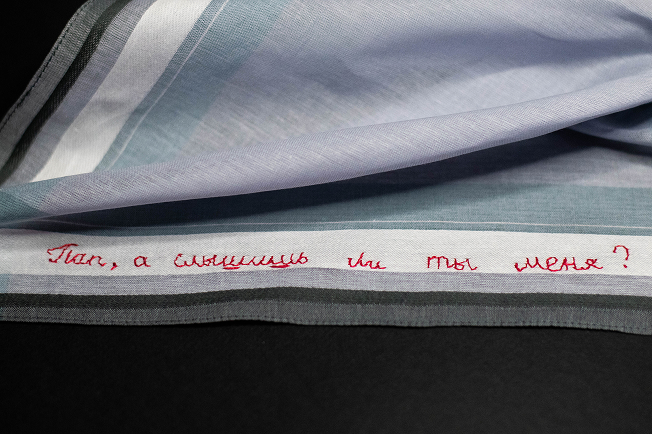 Пап, а слышишь ли ты меня?